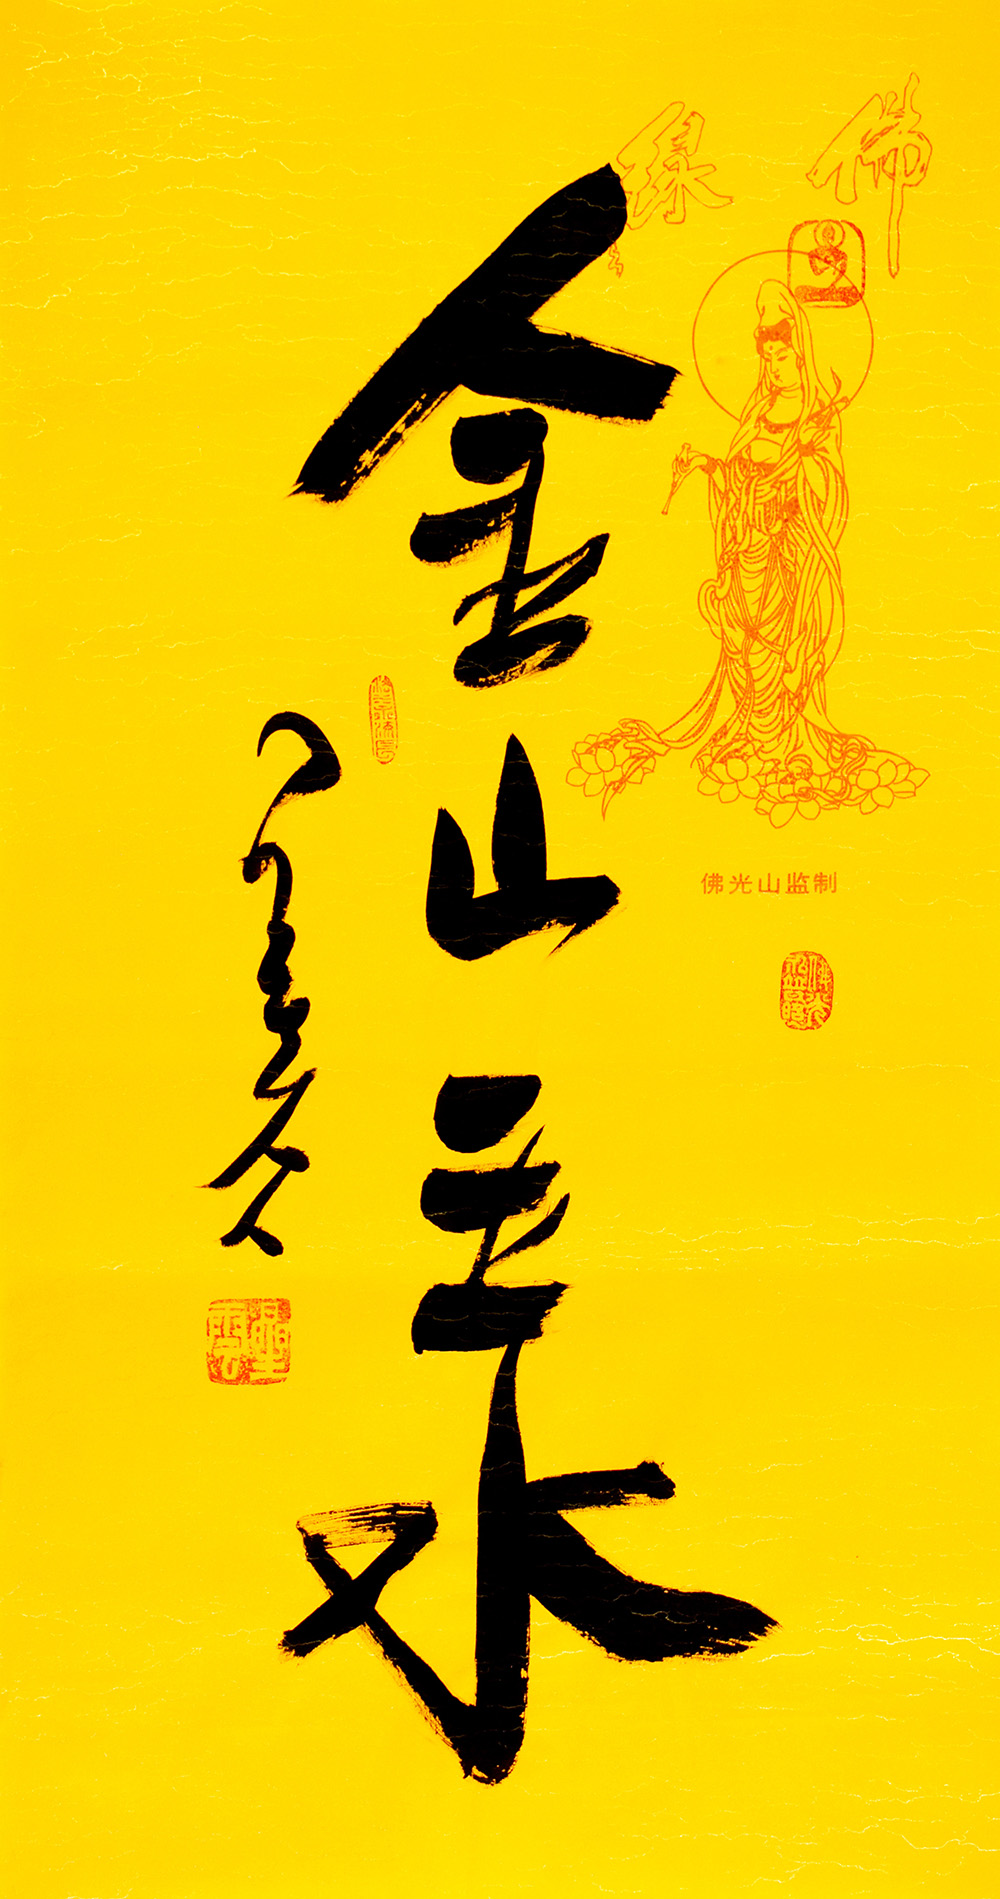 佛緣
佛光山监制
金山玉水
星雲